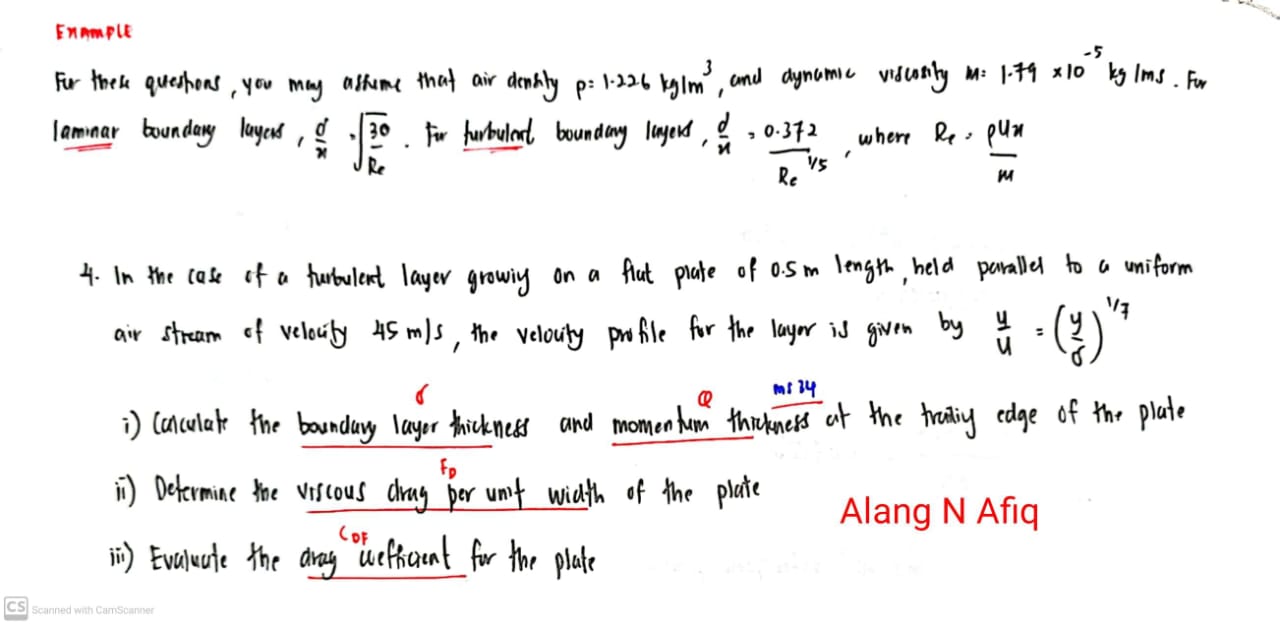 EXAMPLE
For these questions, you may assume that air density ρ= 1.226 kg/m³, and dynamic viscosity M= 1.79 x10⁻⁵ kg/ms. For
laminar boundary layers, δ/x = √30/Re. For turbulent boundary layers, δ/x = 0.372/Re^1/5, where Re = ρUx/M
4. In the case of a turbulent layer growing on a flat plate of 0.5 m length, held parallel to a uniform
air stream of velocity 45 m/s, the velocity profile for the layer is given by u/U = (y/δ)^1/7
δ Θ ms 34
i) Calculate the boundary layer thickness and momentum thickness at the trailing edge of the plate
FD
ii) Determine the viscous drag per unit width of the plate
Alang N Afiq
CDF
iii) Evaluate the drag coefficient for the plate
CS Scanned with CamScanner